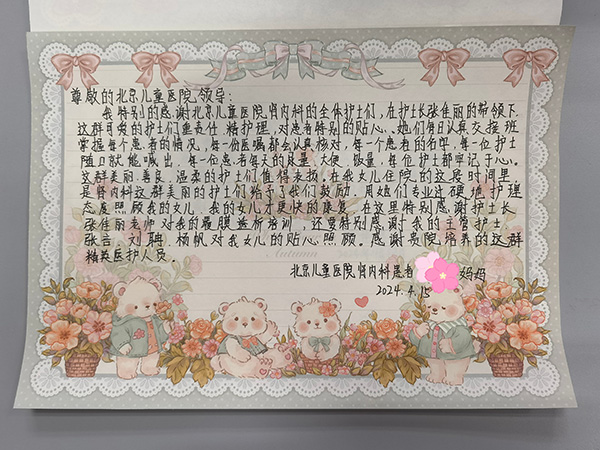 尊敬的北京儿童医院领导:
我特别的感谢北京儿童医院肾内科的全体护士们,在护士长张佳丽的带领下
这群可爱的护士们重责任,精护理,对患者特别的贴心、她们每日认真交接班
掌握每个患者的情况,每一份医嘱都会认真核对,每个患者的名字,每一位护士
随口就能喊出,每一位患者每天的尿量、大便、饭量,每位护士都牢记于心。
这群美丽、善良、温柔的护士们值得表扬。在我女儿住院的这段时间里,
是肾内科这群美丽的护士们给予了我们鼓励,用她们专业过硬地护理
态度照顾我的女儿,我的女儿才更快的康复,在这里特别感谢护士长
张佳丽老师对我的腹膜透析培训,还要特别感谢我的主管护士
张吉、刘聘、杨帆对我女儿的贴心照顾。感谢贵院培养的这群
精英医护人员。
Autumn
北京儿童医院肾内科患者 妈妈
2024.4.15